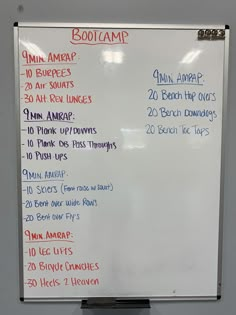 BOOTCAMP
9 MIN AMRAP
-10 BURPEES
-20 AIR SQUATS
-30 ALT REV LUNGES
9 MIN AMRAP:
-10 Plank UP/DOWNS
-10 Plank DB PASS Throughs
-10 PUSH-UPS
9 MIN AMRAP:
-10 SKIERS
-20 Bent over Wide Rows
-20 Bent over Fly's
9 MIN AMRAP:
-10 LEG LIFTS
-20 BICYCLE CRUNCHES
-30 HEELS 2 HEAVEN
9 MIN AMRAP:
20 Bench Hop overs
20 Bench Downdogs
20 Bench Toe Taps